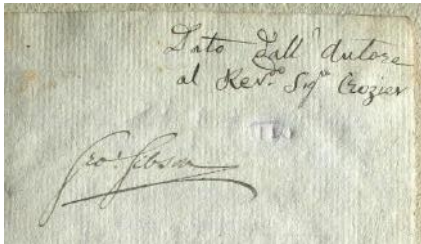 Dato dall' Autore
al Rev.do Sig.e Crozier
Geo. Gibson